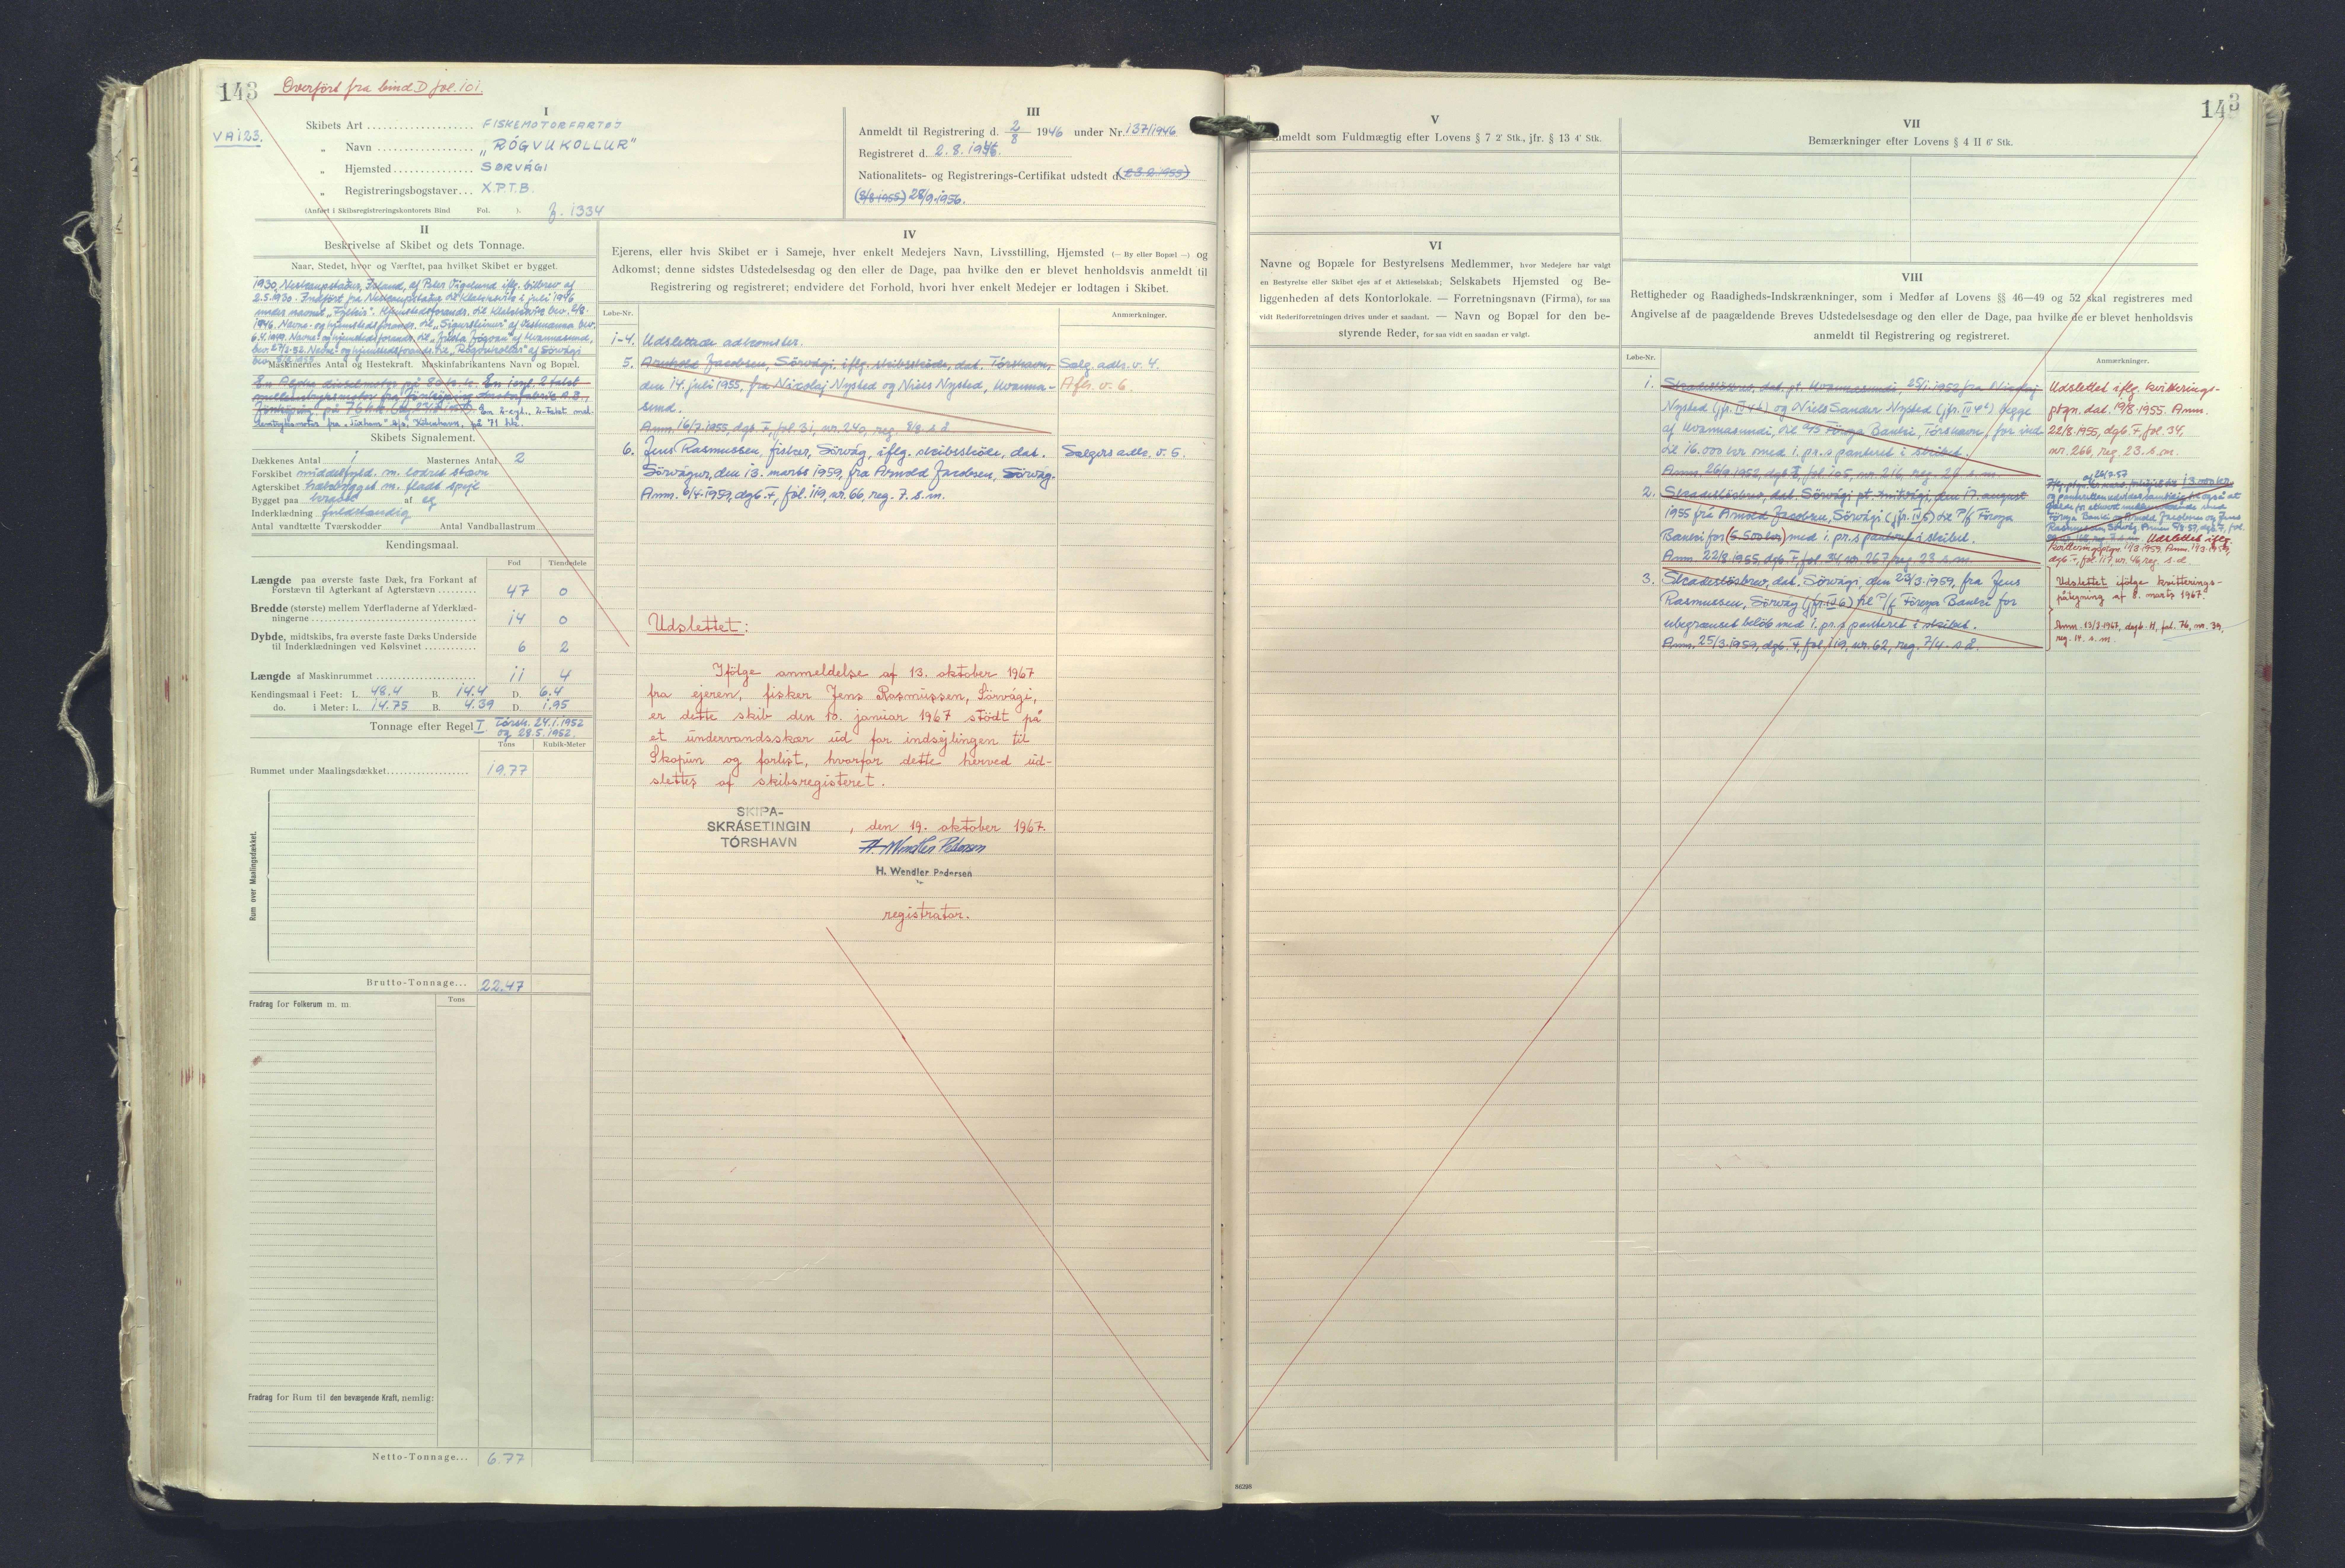 143
Overført fra bind D fol. 101.
VA 123.
I
Skibets Art FISKEMOTORFARTØJ
„ Navn „RÓGVUKOLLUR“
„ Hjemsted SØRVÁGI
„ Registreringsbogstaver X.P.T.B.
(Anført i Skibsregistreringskontorets Bind Fol. ). f. 1334
III
Anmeldt til Registrering d. 2/8 1946 under Nr. 137/1946
Registreret d. 2. 8. 1946.
Nationalitets- og Registrerings-Certifikat udstedt d. (23.2.1955)
(8/8 1955) 28/9.1956.
II
Beskrivelse af Skibet og dets Tonnage.
Naar, Stedet, hvor og Værftet, paa hvilket Skibet er bygget.
1930, Neskaupstaður, Island, af Peter Vigelund iflg. bilbrev af
2.5.1930. Indført fra Neskaupstaður til Klaksvik i juli 1946
under navnet „Fylkir“. Hjemstedsforandr. til bev. 2/8.
1946. Navne- og hjemstedsforandr. til af Vestmanna bev.
6.4.1949. Navne- og hjemstedsforandr. til af Hvannasund,
bev. Navne- og hjemstedsforandr. til „Rógvukollur“ af Sörvági
bev. 8/8 1955
Maskinernes Antal og Hestekraft. Maskinfabrikantens Navn og Bopæl.
En Alpha dieselmotor på 80 h.k. En 1 cyl. 2 takst
mellemtryksmotor fra Jönköping Motorfabrik A.B.,
Jönköping på 76 h.k. En 2-cyl., 2-takst mel-
lemtryksmotor fra A/S, København, på 71 hk.
Skibets Signalement.
Dækkenes Antal 1 Masternes Antal 2
Forskibet middelfyld. m. lodret stævn
Agterskibet m. fladt spejl
Bygget paa kravel af eg
Inderklædning fuldstændig
Antal vandtætte Tværskodder Antal Vandballastrum
Kendingsmaal.
Fod Tiendedele
Længde paa øverste faste Dæk, fra Forkant af
Forstævn til Agterkant af Agterstævn 47 0
Bredde (største) mellem Yderfladerne af Yderklæd-
ningerne 14 0
Dybde, midtskibs, fra øverste faste Dæks Underside
til Inderklædningen ved Kølsvinet 6 2
Længde af Maskinrummet 11 4
Kendingsmaal i Feet: L. 48.4 B. 14.4 D. 6.4
do. i Meter: L. 14.75 B. 4.39 D. 1.95
Tonnage efter Regel I Tórsh. 24.1.1952
og 28.5.1952.
Tons Kubik-Meter
Rummet under Maalingsdækket 19.77
Rum over Maalingsdækket.
Brutto-Tonnage... 22.47
Fradrag for Folkerum m. m. Tons
Fradrag for Rum til den bevægende Kraft, nemlig:
Netto-Tonnage... 6.77
IV
Ejerens, eller hvis Skibet er i Sameje, hver enkelt Medejers Navn, Livsstilling, Hjemsted (— By eller Bopæl —) og
Adkomst; denne sidstes Udstedelsesdag og den eller de Dage, paa hvilke den er blevet henholdsvis anmeldt til
Registrering og registreret; endvidere det Forhold, hvori hver enkelt Medejer er lodtagen i Skibet.
Løbe-Nr. Anmærkninger.
1-4. Udslettede adkomster.
5. Arnhold Jacobsen, Sörvági, iflg. skibsskøde, dat. Tórshavn, Sælg. adk. v. 4.
den 14. juli 1955, fra Nicolaj Nysted og Niels Nysted, Hvanna- Afh. v. 6
sund.
Anm. 16/7.1955, dgb. F, fol. 31, nr. 240, reg. 8/8 s.å.
6. Jens Rasmussen, fisker, Sörvág, iflg. skibsskøde, dat. Sælgers adk. v. 5.
Sörvágur, den 13. marts 1959, fra Arnold Jacobsen, Sörvág.
Anm. 6/4.1959, dgb. F, fol. 119, nr. 66, reg. 7. s. m.
Udslettet:
Ifölge anmeldelse af 13. oktober 1967
fra ejeren, fisker Jens Rasmussen, Sörvági,
er dette skib den 10. januar 1967 stödt på
et undervandsskær ud for indsejlingen til
Skopun og forlist, hvorfor dette herved ud-
slettes af skibsregisteret.
SKIPA-
SKRÁSETINGIN
TÓRSHAVN
, den 19. oktober 1967.
H. Wendler Pedersen
H. Wendler Pedersen
registrator.
143
V
Anmeldt som Fuldmægtig efter Lovens § 7 2' Stk., jfr. § 13 4' Stk.
VI
Navne og Bopæle for Bestyrelsens Medlemmer, hvor Medejere har valgt
en Bestyrelse eller Skibet ejes af et Aktieselskab; Selskabets Hjemsted og Be-
liggenheden af dets Kontorlokale. — Forretningsnavn (Firma), for saa
vidt Rederiforretningen drives under et saadant. — Navn og Bopæl for den be-
styrende Reder, for saa vidt en saadan er valgt.
VII
Bemærkninger efter Lovens § 4 II 6' Stk.
VIII
Rettigheder og Raadigheds-Indskrænkninger, som i Medfør af Lovens §§ 46—49 og 52 skal registreres med
Angivelse af de paagældende Breves Udstedelsesdag og den eller de Dage, paa hvilke de er blevet henholdsvis
anmeldt til Registrering og registreret.
Løbe-Nr. Anmærkninger.
1. Skadesløsbrev, dat. pt. Hvannasundi, 25/1.1952 fra Nicolaj
Nysted (jfr. IV 4) og Niels Sander Nysted (jfr. IV 4) begge
af Hvannasundi, til A/S Föroya Banki, Tórshavn, for ind-
til 16.000 kr med 1. pr.s panteret i skibet.
Anm. 26/9.1952, dgb. fol. 105, nr. 216, reg. s. m.
Udslettet iflg. kvitterings-
ptgn. dat. 19/8.1955. Anm.
22/8.1955, dgb. F, fol. 34,
nr. 266, reg. 23. s. m.
2. Skadesløsbrev, dat. Sörvági pt. Miðvági, den 17. august
1955 frá Arnold Jacobsen, Sörvági (jfr. IV 5) til P/f Föroya
Banki for (6.500 kr) med 1. pr.s panteret i skibet.
Anm. 22/8.1955, dgb. F, fol. 34, nr. 267, reg. 23. s. m.
13.000 kr
Udslettet iflg.
kvitteringsptgn. 19.3.1959. Anm. 19.3.1959,
dgb. F, fol. 117, nr. 46, reg. s. d.
3. Skadesløsbrev, dat. Sörvági, den 23/3.1959, fra Jens
Rasmussen, Sörvág (jfr. IV 6) til P/f Föroya Banki for
ubegrænset beløb med 1. pr.s panteret i skibet.
Anm. 25/3.1959, dgb. F, fol. 119, nr. 62, reg. 7/4. s å.
Udslettet ifölge kvitterings-
påtegning af 8. marts 1967.
Anm. 13/3.1967, dagb. H, fol. 76, nr. 39,
reg. 14. s. m.
86298